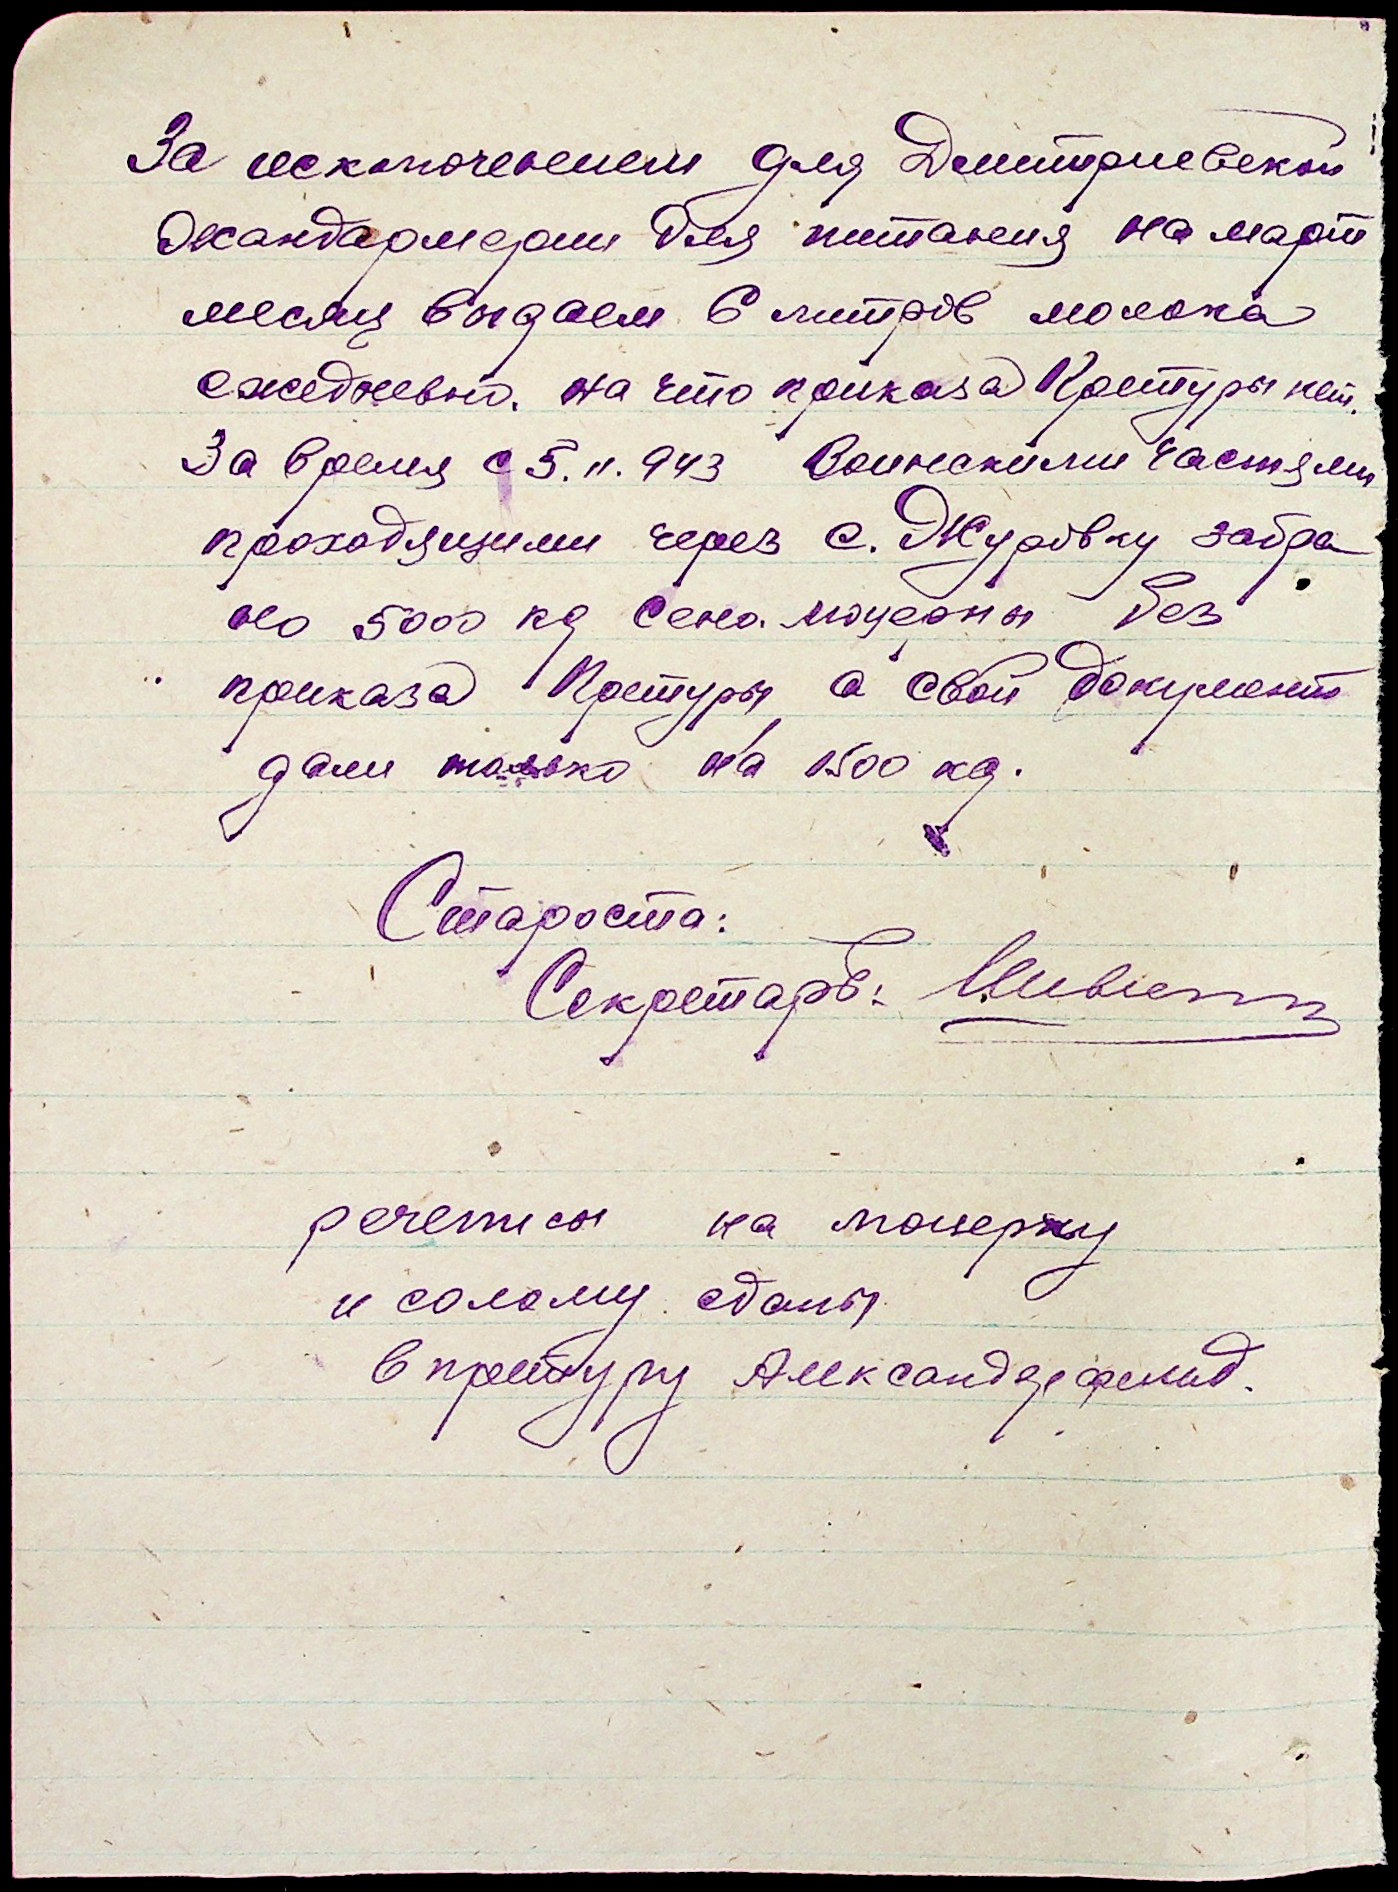 За исключением для Дмитриевской
жандармерии для питания на март
месяц выдаем 6 литров молока
ежедневно. на что приказа Претуры нет.
За время с 5.II.943 Воинскими частями
проходящими через с. Журовку забра
но 5000 кг сено. люцерны без
приказа Претуры, а свой документ
дали только на 1500 кг.
Староста:
Секретарь:
на люцерну
и солому сданы
в претуру Александерфельд.